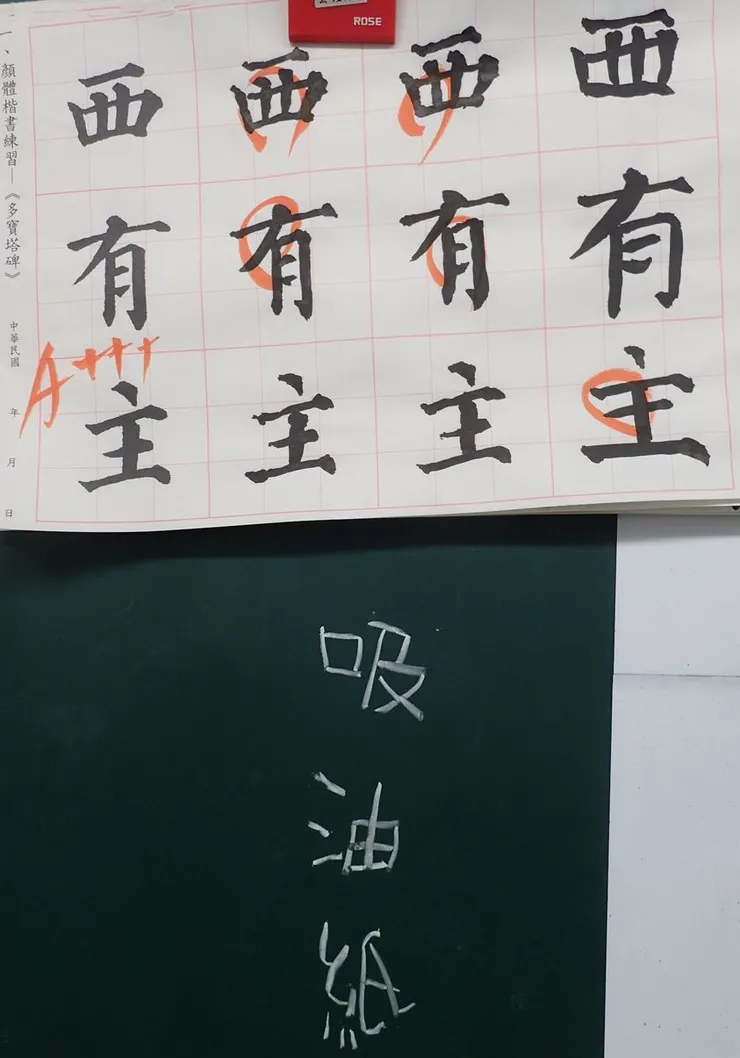 ROSE
一、顏體楷書練習—《多寶塔碑》 中華民國 年 月 日
西 西 西 西
有 有 有 有
主 主 主 主
A+++
吸油紙